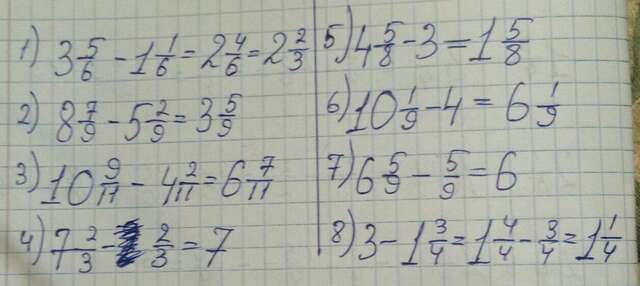 1) 3 5/6 - 1 1/6 = 2 4/6 = 2 2/3
2) 8 7/9 - 5 2/9 = 3 5/9
3) 10 9/11 - 4 2/11 = 6 7/11
4) 7 2/3 - 2/3 = 7
5) 4 5/8 - 3 = 1 5/8
6) 10 1/9 - 4 = 6 1/9
7) 6 5/9 - 5/9 = 6
8) 3 - 1 3/4 = 1 4/4 - 3/4 = 1 1/4